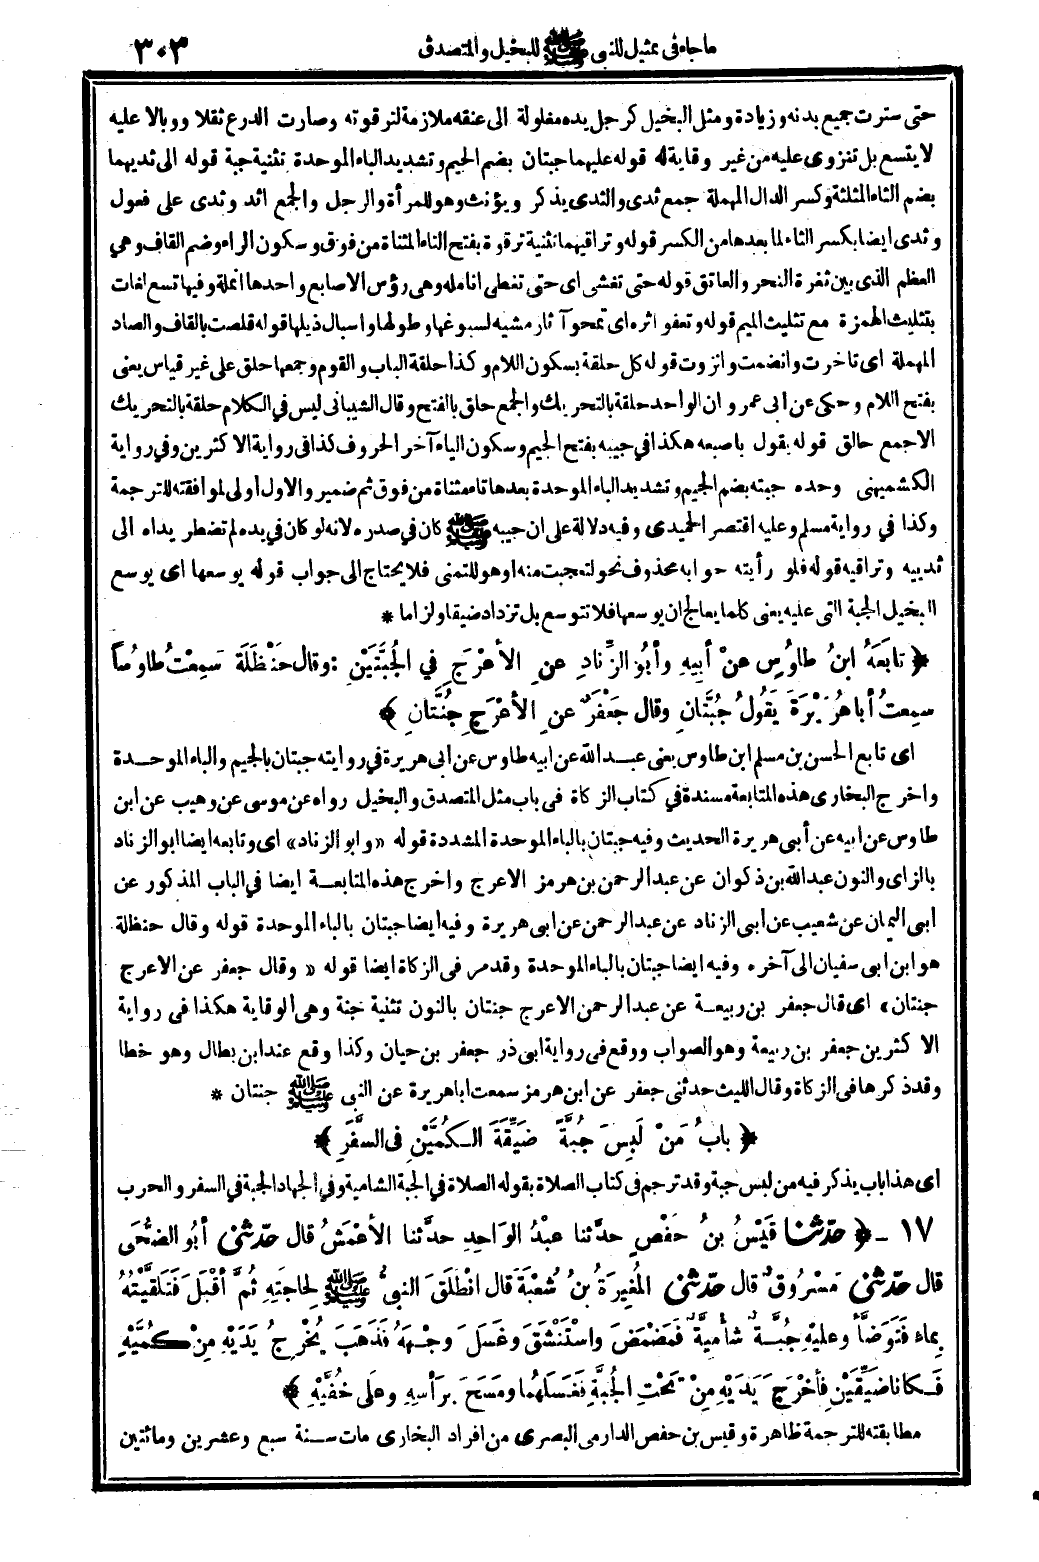 ماجاء فى تمثيل النبى ﷺ للبخيل والمتصدق ٣٠٣
حتى سترت جميع بدنه وزيادة ومثل البخيل كرجل يده مغلولة الى عنقه ملازمة لترقوته وصارت الدرع ثقلا ووبالا عليه
لا يتسع بل تنزوى عليه من غير وقاية له قوله عليهما جبتان بضم الجيم وتشديد الباء الموحدة تثنية جبة قوله الى ثديهما
بضم الثاء المثلثة وكسر الدال المهملة جمع ثدى والثدى يذكر ويؤنث وهو للمرأة والرجل والجمع اثد وثدى على فعول
وثدى ايضا بكسر الثاء لما بعدها من الكسر قوله وتراقيهما تثنية ترقوة بفتح التاء المثناة من فوق وسكون الراء وضم القاف وهى
العظم الذى بين ثغرة النحر والعاتق قوله حتى تغشى اى حتى تغطى انامله وهى رؤس الاصابع واحدها انملة وفيها تسع لغات
بتثليث الهمزة مع تثليث الميم قوله وتعفو اثره اى تمحو آثار مشيه لسبوغها وطولها واسبال ذيلها قوله قلصت بالقاف والصاد
المهملة اى تاخرت وانضمت وانزوت قوله كل حلقة بسكون اللام وكذا حلقة الباب والقوم وجمعها حلق على غير قياس يعنى
بفتح اللام وحكى عن ابى عمرو ان الواحد حلقة بالتحريك والجمع حلق بالفتح وقال الشيبانى ليس فى الكلام حلقة بالتحريك
الا جمع حالق قوله يقول باصبعه هكذا في جيبه بفتح الجيم وسكون الياء آخر الحروف كذا فى رواية الاكثرين وفي رواية
الكشميهنى وحده جبته بضم الجيم وتشديد الباء الموحدة بعدها تاء مثناة من فوق ثم ضمير والاول اولى لموافقته للترجمة
وكذا في رواية مسلم وعليه اقتصر الحميدى وفيه دلالة على ان جيبه ﷺ كان في صدره لانه لو كان في يده لم تضطر يداه الى
ثدييه وتراقيه قوله فلو رأيته جوابه محذوف نحو لتعجبت منه او هو للتمنى فلا يحتاج الى جواب قوله يوسعها اى يوسع
البخيل الجبة التى عليه يعنى كلما يعالج ان يوسعها فلا تتوسع بل تزداد ضيقا ولزاما *
﴿ تابَعَهُ ابنُ طاوُسٍ عنْ أبيهِ وأبُو الزِّنادِ عنِ الأعْرَجِ في الجُبَّتَيْنِ : وقال حَنْظَلَة سَمِعْتُ طاوُساً
سمِعتُ أباهُرَيْرَةَ يَقُولُ جُبَّتَانِ وقال جَعْفَرٌ عنِ الأعْرَجِ جُنَّتَانِ ﴾
اى تابع الحسن بن مسلم ابن طاوس يعنى عبد الله عن ابيه طاوس عن ابى هريرة في روايته جبتان بالجيم والباء الموحدة
واخرج البخارى هذه المتابعة مسندة في كتاب الزكاة فى باب مثل المتصدق والبخيل رواه عن موسى عن وهيب عن ابن
طاوس عن ابيه عن أبى هريرة الحديث وفيه جبتان بالباء الموحدة المشددة قوله «وابو الزناد» اى وتابعه ايضا ابو الزناد
بالزاى والنون عبد الله بن ذكوان عن عبد الرحمن بن هرمز الاعرج واخرج هذه المتابعة ايضا في الباب المذكور عن
ابى اليمان عن شعيب عن ابى الزناد عن عبد الرحمن عن ابى هريرة وفيه ايضا جبتان بالباء الموحدة قوله وقال حنظلة
هو ابن ابى سفيان الى آخره وفيه ايضا جبتان بالباء الموحدة وقدمر فى الزكاة ايضا قوله « وقال جعفر عن الاعرج
جنتان » اى قال جعفر بن ربيعة عن عبد الرحمن الاعرج جنتان بالنون تثنية جنة وهى الوقاية هكذا فى رواية
الاكثرين جعفر بن ربيعة وهو الصواب ووقع فى رواية ابى ذر جعفر بن حيان وكذا وقع عند ابن بطال وهو خطا
وقد ذكرها فى الزكاة وقال الليث حدثنى جعفر عن ابن هرمز سمعت اباهريرة عن النبى ﷺ جنتان *
﴿ بابُ مَنْ لَبِسَ جُبَّةً ضَيِّقَةَ الكُمَّيْنِ فى السَّفَرِ ﴾
اى هذا باب يذكر فيه من لبس جبة وقد ترجم فى كتاب الصلاة بقوله الصلاة في الجبة الشامية وفي الجهاد الجبة في السفر والحرب
١٧ - ﴿ حدّثنا قَيْسُ بنُ حَفْصٍ حدثنا عبْدُ الوَاحِدِ حدثنا الأعْمَشُ قال حدّثنى أبُو الضُّحَى
قال حدّثنى مَسْرُوقٌ قال حدّثنى المُغِيرَةُ بنُ شُعْبَةَ قال انْطَلَقَ النبىُّ ﷺ لِحاجَتِهِ ثُمَّ أقْبَلَ فَتَلَقَّيْتُهُ
بِماء فَتَوَضَّأ وعليْهِ جُبَّةٌ شأمِيةٌ فَمَضْمَضَ واسْتَنْشَقَ وغَسَلَ وجْهَهُ فَذَهَبَ يُخْرِجُ يَدَيْهِ مِنْ كُمَّيْهِ
فَكانا ضَيِّقَيْنِ فأخْرَجَ يَدَيْهِ مِنْ تَحْتِ الجُبَّةِ فَغَسَلَهُما ومَسَحَ بِرَأسِهِ وعلَى خُفَّيْهِ ﴾
مطابقته للترجمة ظاهرة وقيس بن حفص الدارمى البصرى من افراد البخارى مات سنة سبع وعشرين ومائتين